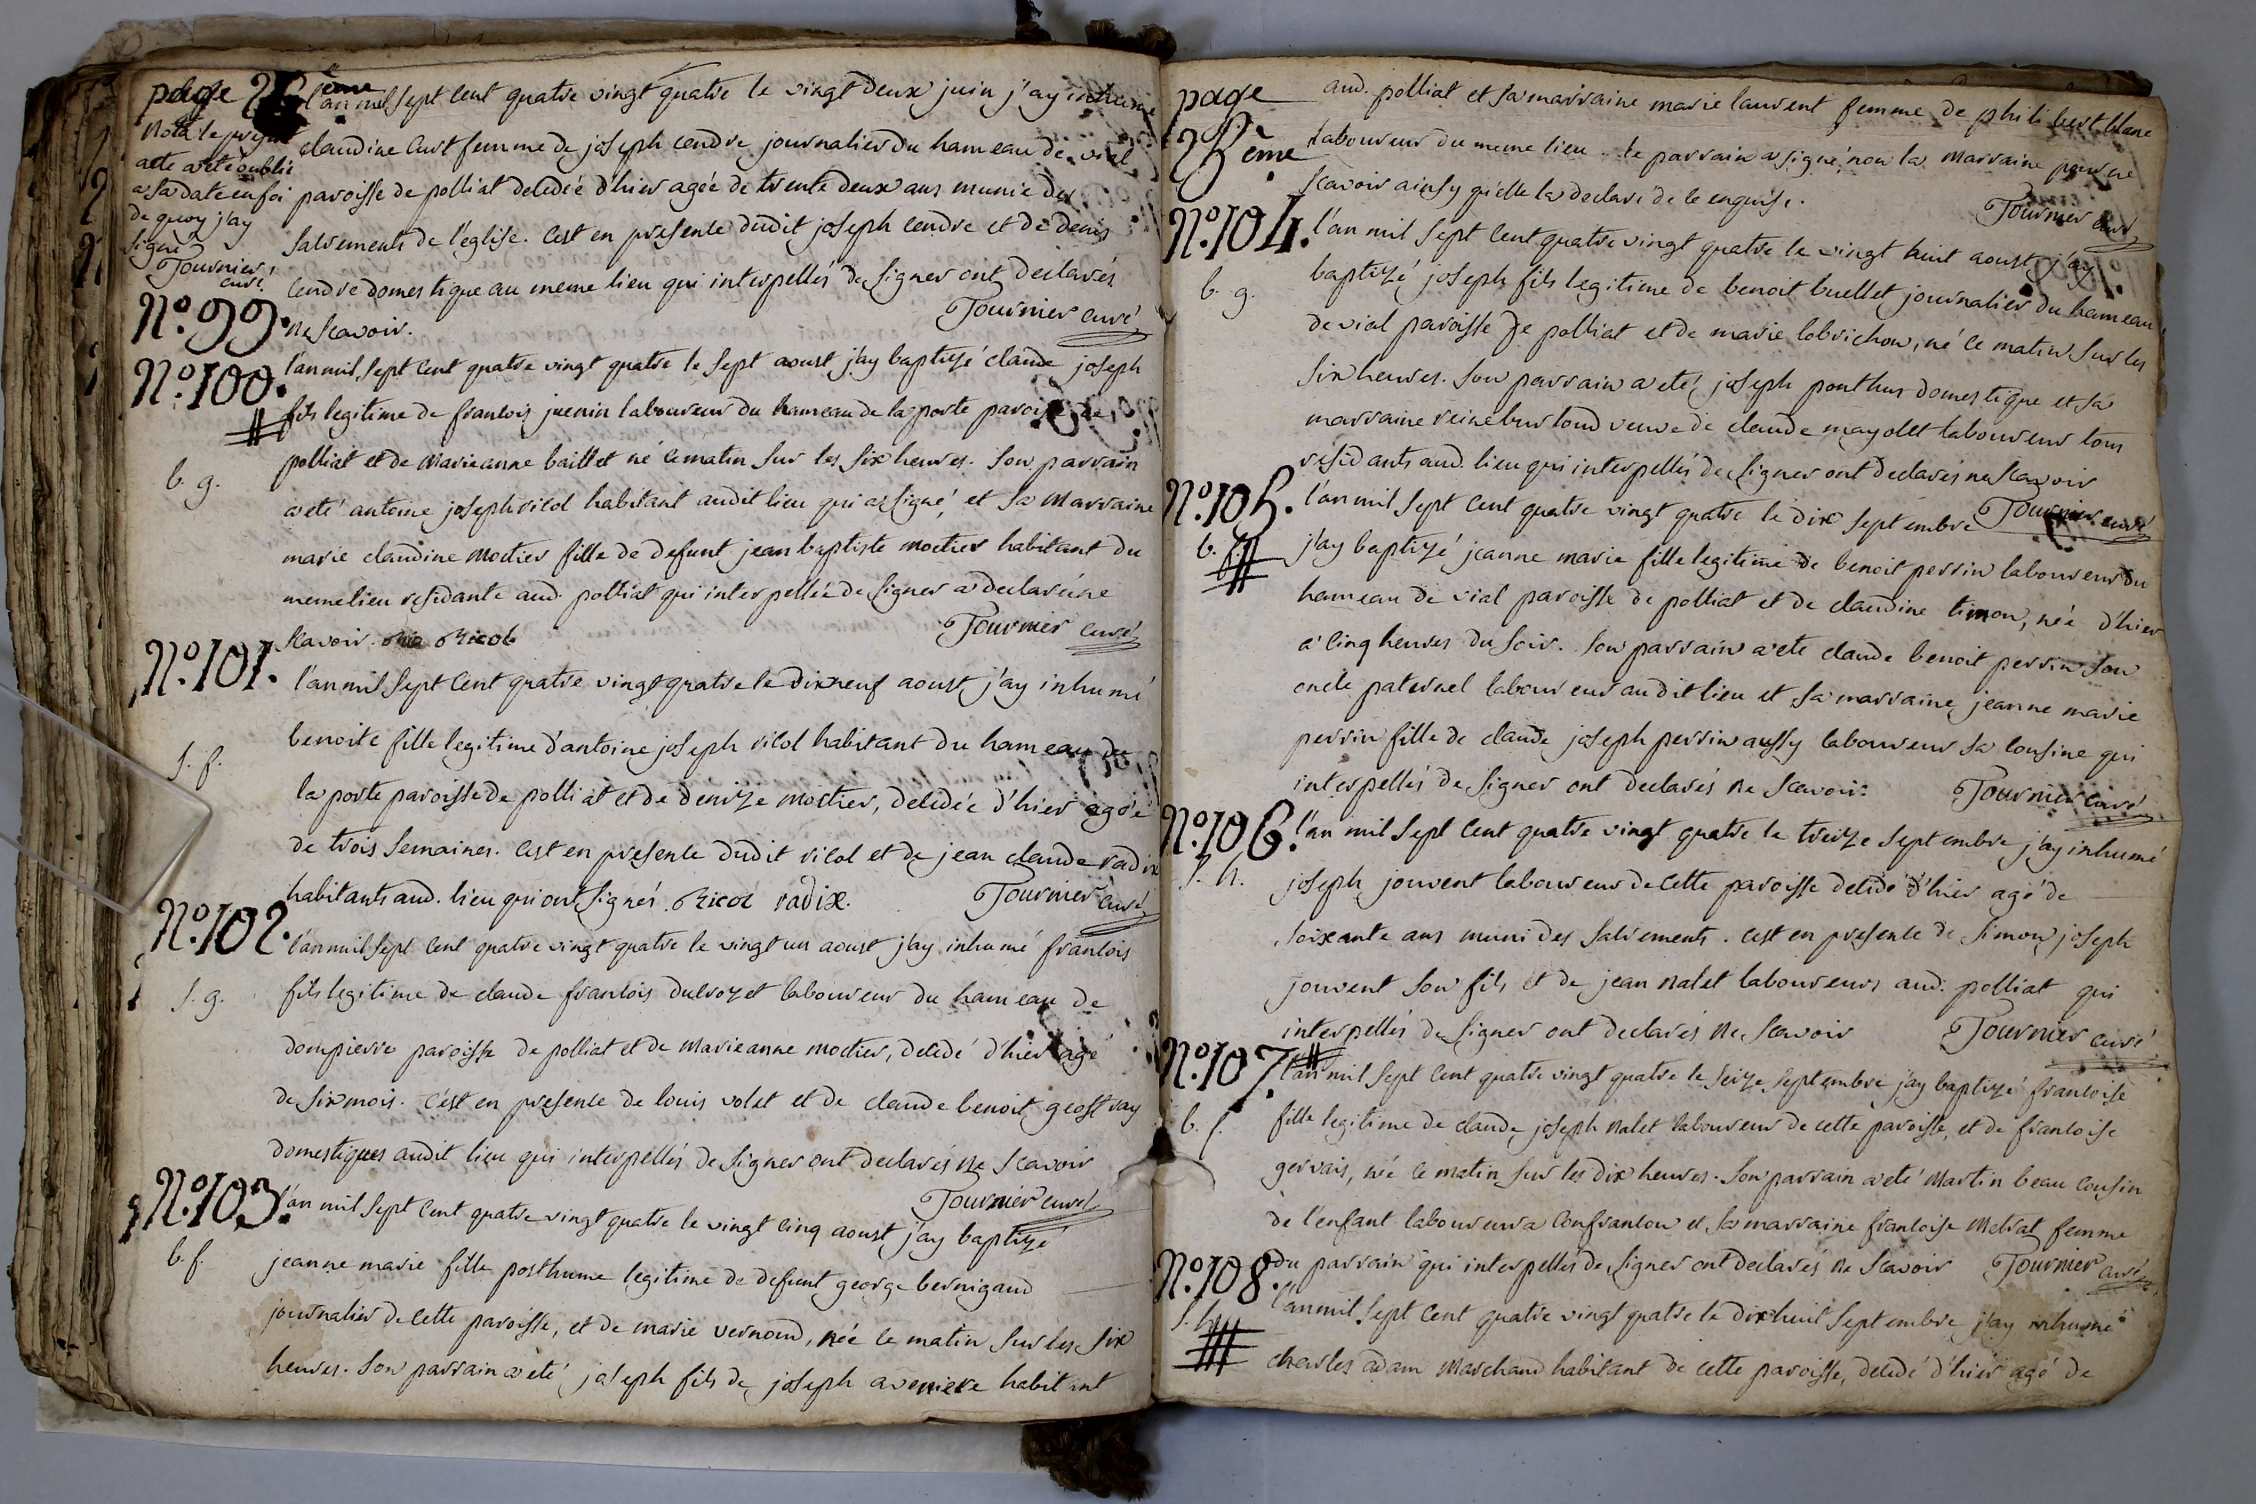 page 26ème
Nota le present
acte a eté oublié
a sa date en foi
de quoy j'ay
signé
Tournier
curé
l'an mil sept cent quatre vingt quatre le vingt deux juin j'ay inhumé
claudine curt femme de joseph cendre journalier du hameau de vial
paroisse de polliat decedée d'hier agée de trente deux ans munie des
sacrements de l'église. C'est en presence dudit joseph cendre et de denis
cendre domestique au meme lieu qui interpellés de signer ont declarés
N°.99. ne scavoir. Tournier curé
N°.100. l'an mil sept cent quatre vingt quatre le sept aoust j'ay baptizé claude joseph
fils legitime de francois juenin laboureur du hameau de la poste paroisse de
b. g. polliat et de marieanne baillet né ce matin sur les six heures. Son parrain
a eté antoine joseph ricol habitant audit lieu qui a signé, et sa marraine
marie claudine moctier fille de defunt jean baptiste moctier habitant du
meme lieu residante aud. polliat qui interpellée de signer a declaré ne
scavoir. Ricol Tournier curé
N°.101. l'an mil sept cent quatre vingt quatre le dixneuf aoust j'ay inhumé
s. f. benoite fille legitime d'antoine joseph ricol habitant du hameau de
la poste paroisse de polliat et de denize moctier, decedée d'hier agée
de trois semaines. C'est en presence dudit ricol et de jean claude radix
habitants aud. lieu qui ont signés. Ricol radix. Tournier curé
N°.102. l'an mil sept cent quatre vingt quatre le vingt un aoust j'ay inhumé francois
s. g. fils legitime de claude francois ducrozet laboureur du hameau de
dompierre paroisse de polliat et de marieanne moctier, decedé d'hier agé
de six mois. C'est en presence de louis volet et de claude benoit geoffray
domestiques audit lieu qui interpellés de signer ont declarés ne scavoir
Tournier curé
N°.103. l'an mil sept cent quatre vingt quatre le vingt cinq aoust j'ay baptizé
b. f. jeanne marie fille posthume legitime de defunt george bernigaud
journalier de cette paroisse, et de marie vernoud, née ce matin sur les six
heures. Son parrain a eté joseph fils de joseph aveniere habitant
page 28ème
aud. polliat et sa marraine marie laurent femme de philibert blanc
laboureur du meme lieu. le parrain a signé, non la marraine pour ne
scavoir ainsy qu'elle la declaré de ce enquise.
Tournier curé
N°.104. l'an mil sept cent quatre vingt quatre le vingt huit aoust j'ay
b. g. baptizé joseph fils legitime de benoit buellet journalier du hameau
de vial paroisse de polliat et de marie cobrichon, né ce matin sur les
six heures. Son parrain a eté joseph ponthus domestique et sa
marraine reine burtoud veuve de claude mayolet laboureur tous
residants aud. lieu qui interpellés de signer ont declarés ne scavoir
Tournier curé
N°.105. l'an mil sept cent quatre vingt quatre le dix septembre
b. f. j'ay baptizé jeanne marie fille legitime de benoit perrin laboureur du
hameau de vial paroisse de polliat et de claudine timon, née d'hier
a cinq heures du soir. Son parrain a eté claude benoit perrin son
oncle paternel laboureur audit lieu et sa marraine jeanne marie
perrin fille de claude joseph perrin aussy laboureur sa cousine qui
interpellés de signer ont declarés ne scavoir. Tournier curé
N°.106. l'an mil sept cent quatre vingt quatre le treize septembre j'ay inhumé
s. h. joseph jouvent laboureur de cette paroisse decedé d'hier agé de
soixante ans muni des sacrements. C'est en presence de simon joseph
jouvent son fils et de jean nalet laboureurs aud. polliat qui
interpellés de signer ont declarés ne scavoir Tournier curé
N°.107. l'an mil sept cent quatre vingt quatre le seize septembre j'ay baptizé francoise
b. f. fille legitime de claude joseph nalet laboureur de cette paroisse, et de francoise
gervais, née ce matin sur les dix heures. Son parrain a eté martin beau cousin
de l'enfant laboureur a confrancon et, sa marraine francoise metrat femme
du parrain qui interpellés de signer ont declarés ne scavoir Tournier curé
N°.108. l'an mil sept cent quatre vingt quatre le dixhuit septembre j'ay inhumé
s. h. charles adam marchand habitant de cette paroisse, decedé d'hier agé de